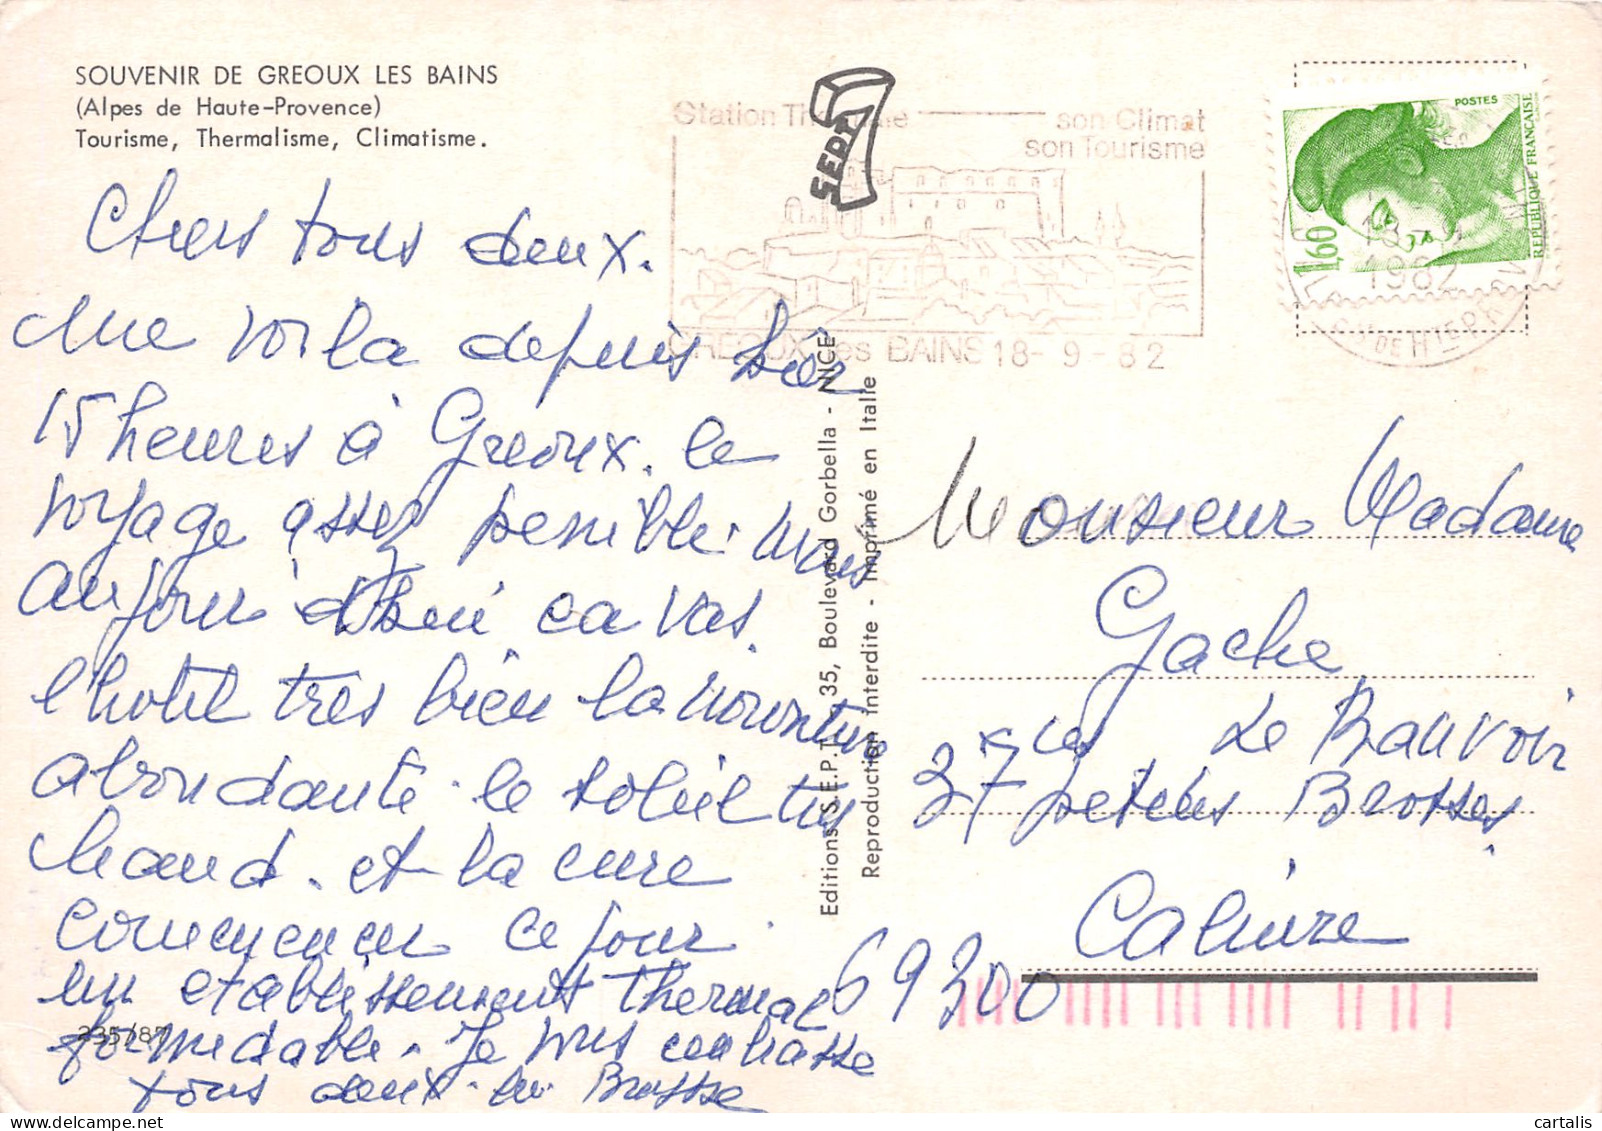 SOUVENIR DE GREOUX LES BAINS
(Alpes de Haute-Provence)
Tourisme, Thermalisme, Climatisme.
Chers tous deux.
Me voila depuis hier
15 heures à Greoux. le
voyage assez penible. mais
aujourd'hui ca vas.
l'hotel très bien la nourriture
abondante. le soleil très
chaud. et la cure
commencer ce jour.
un etablissement thermal
formidable. Je vous embrasse
tous deux.
235/87
Station Thermale
son Climat
son Tourisme
GREOUX les BAINS 18-9-82
SEPT
Editions S.E.P.T. - 35, Boulevard Gorbella - NICE
Reproduction interdite - Imprimé en Italie
POSTES
RÉPUBLIQUE FRANÇAISE
1,60
1982
DE HTE PR
Monsieur Madame
Gache
Le Beauvoir
37 Brosses
Caluire
69300
cartalis
www.delcampe.net